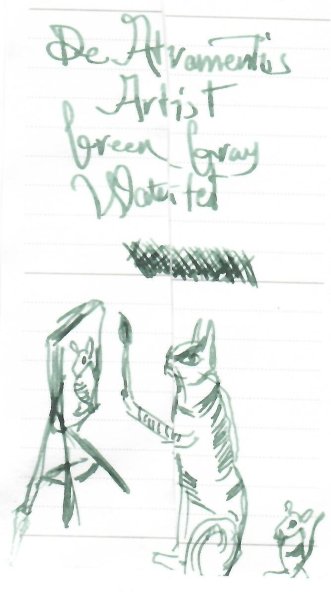 De Atramentis
Artist
Green Gray